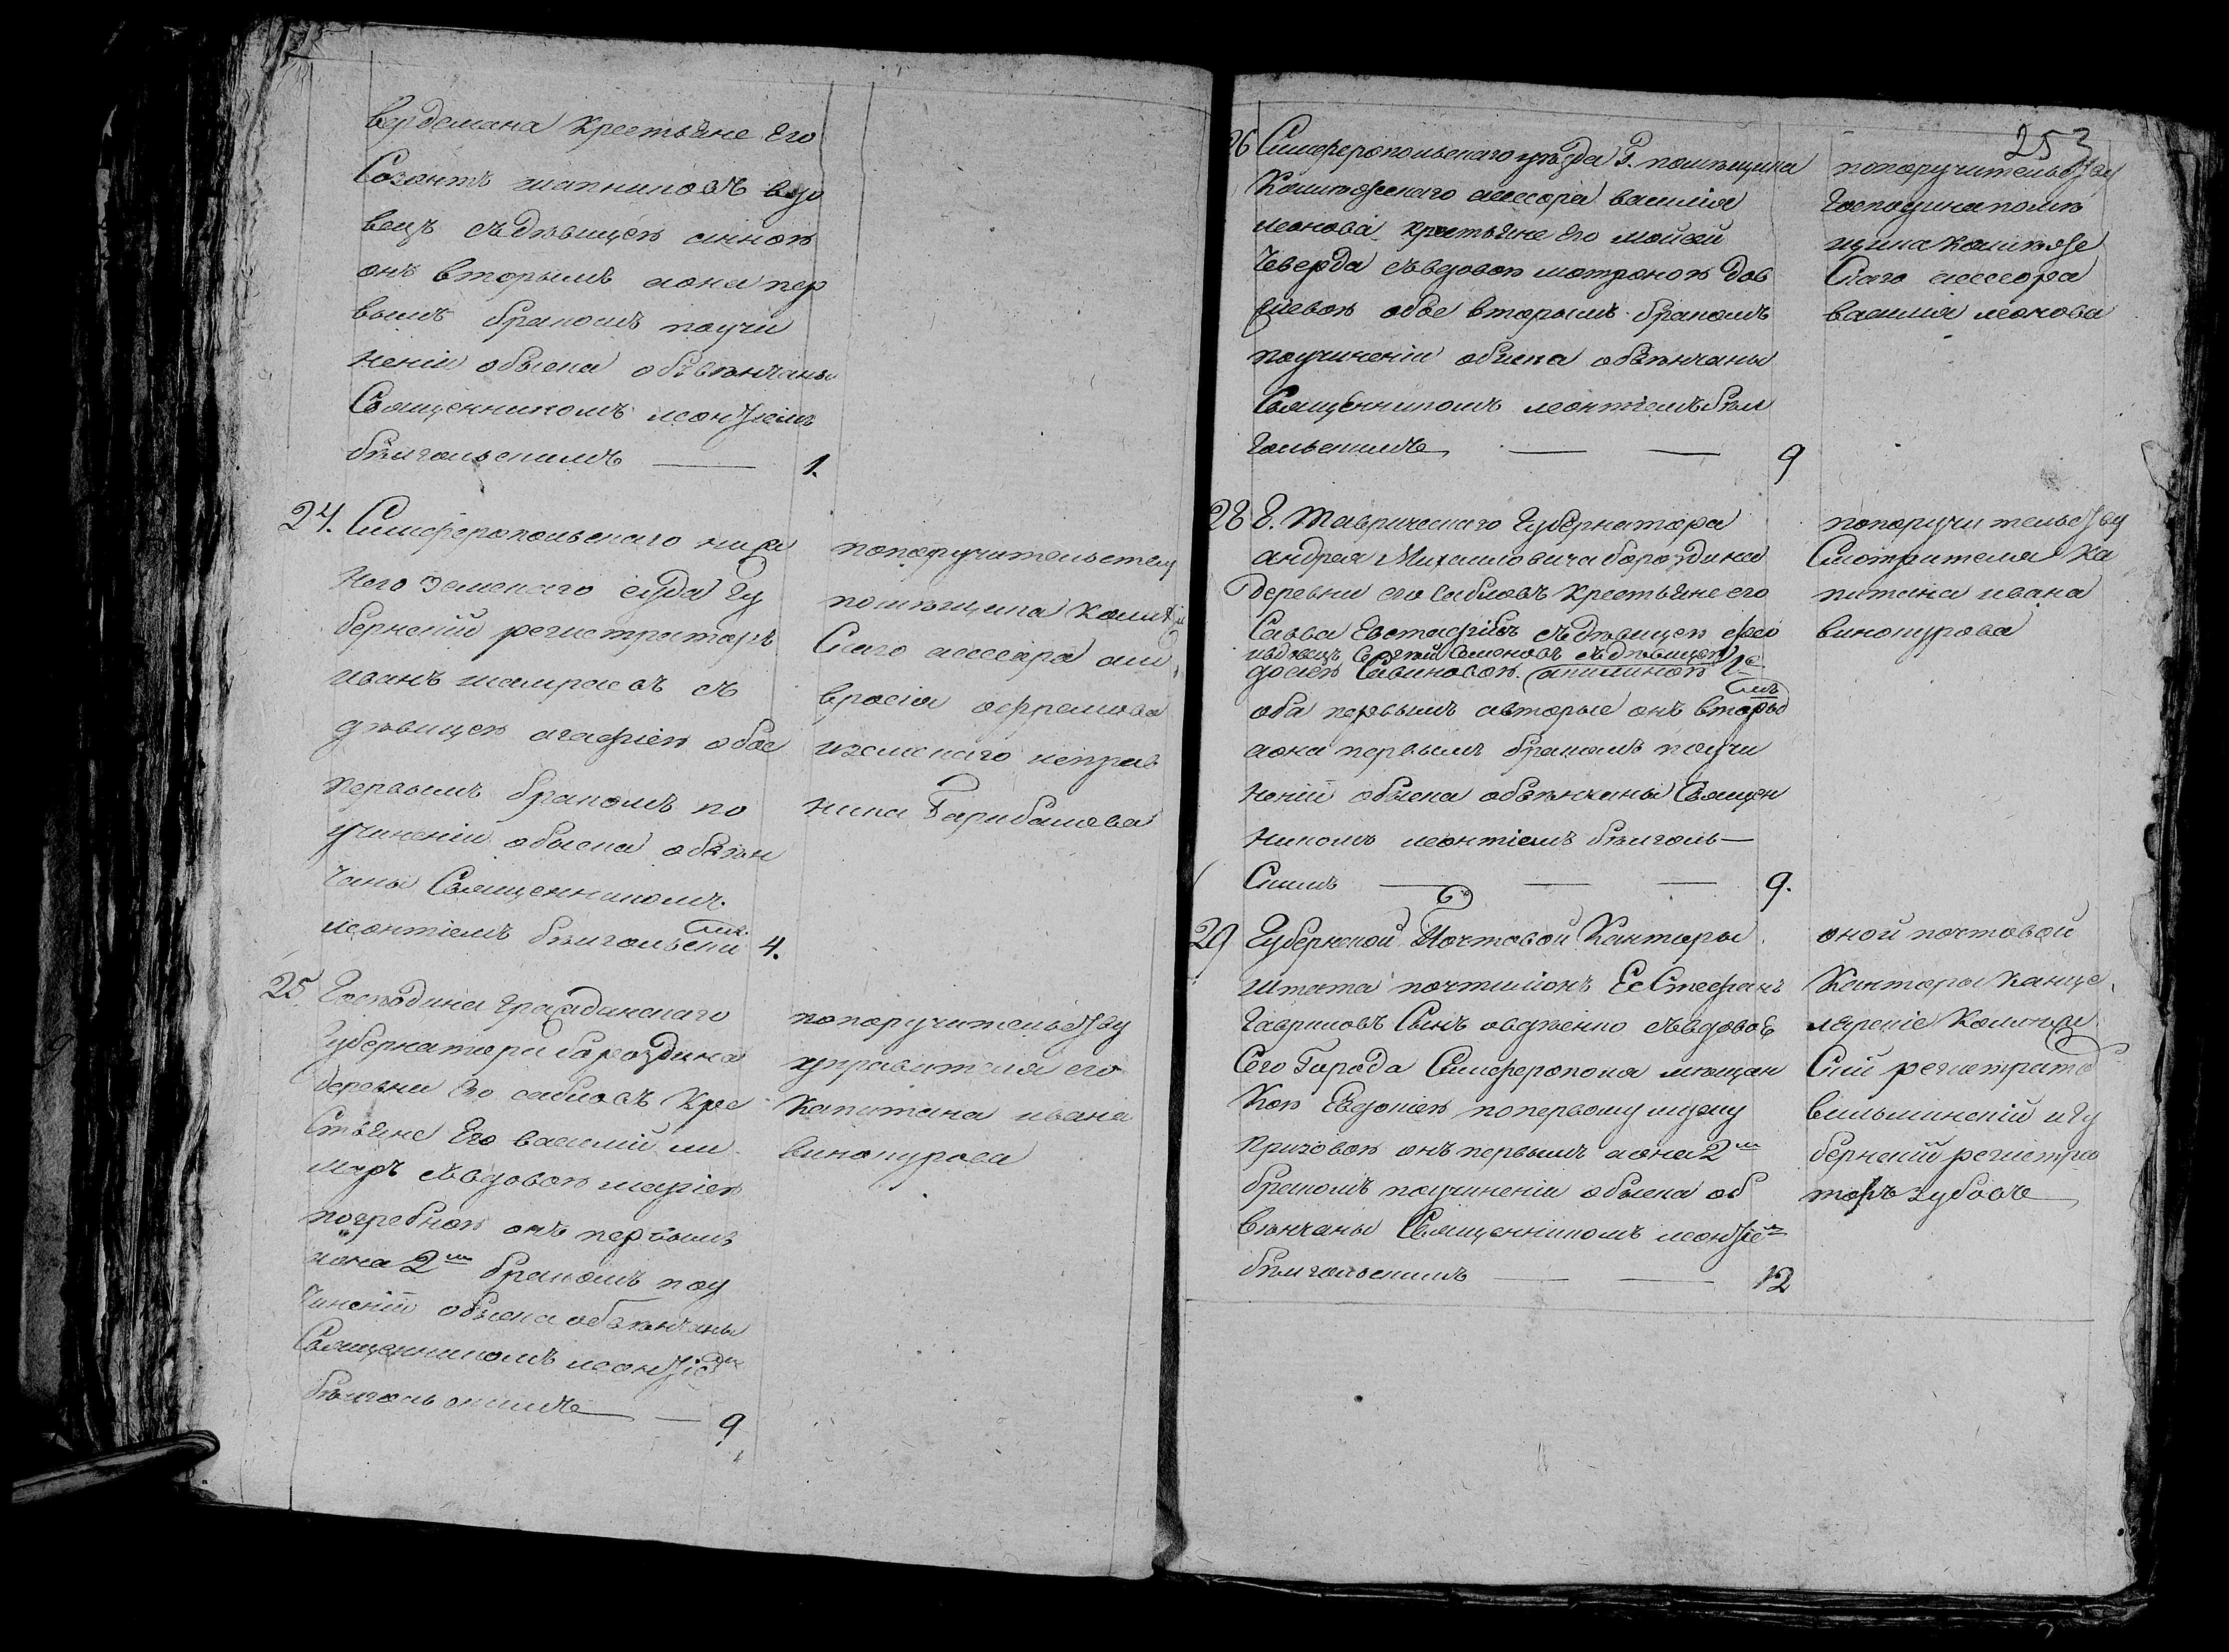 вердемана крестьяне его
Созонтъ шапниловъ вдо
вецъ съдѣвицею анною
онъ вторымъ аона пер
вымъ бракомъ поучи
неніи обыска обвѣнчаны
Священникомъ леонтіемъ
бѣлгольскимъ — 1.
24. Симферопольскаго ниж
няго Земскаго суда гу
бернскій регистраторъ
иванъ съ
дѣвицею агафіею обое
первымъ бракомъ по
учиненіи обыска обвѣн
чаны Священникомъ
леонтіемъ бѣлгольски
мъ 4.
попоручительству
помѣщика колѣж
Скаго асессора ам
вросія ефремова
иземскаго исправ
ника
25. Господина гражданскаго
Губернатора бороздина
деревни его сабловъ кре
Стьяне Его василій
съвдовою маріею
погребною онъ первымъ
аона 2мъ бракомъ поу
чиненіи обыска обвѣнчаны
Священникомъ леонтіемъ
бѣлгольскимъ — 9
попоручительству
управителя его
Капитана ивана
винокурова
253
26 Симферопольскаго уѣзда Г. помѣщика
Колѣжскаго асессора василія
леонова крестьяне его мойсей
Чверда съвдовою матроною дов
обое вторымъ бракомъ
поучиненіи обыска обвѣнчаны
Священникомъ леонтіемъ бѣл
гольскимъ — — 9
попоручительству
Господина помѣ
щика колѣже
Скаго асессора
василія леонова
28 Г. Таврическаго Губернатора
андрея Михаиловича бороздина
Деревни его сабловъ крестьяне его
Савва Евстафіевъ съдѣвицею фео
ивдовецъ Семеновъ съдѣвицею
досіею Савиновою. акилиною
оба первымъ авторые онъ вторы
мъ
аона первымъ бракомъ поучи
неніи обыска обвѣнчаны Священ
никомъ леонтіемъ бѣлголь—
Скимъ — — — 9.
попоручительству
Смотрителя Ка
питана ивана
винокурова
29 Губернской Почтовой Канторы
Штата почтиліонъ Стефанъ
Гавриловъ Сынъ съвдовою
Сего Города Симферополя мѣщан
Кою Евдокіею попервому мужу
онъ первымъ аона 2мъ
бракомъ поучиненіи обыска об
вѣнчаны Священникомъ леонтіемъ
бѣлгольскимъ — — 12
оной почтовой
Канторы Канце
лярскіе
Скій регистраторъ
вильминскій игу
бернскій регистра
торъ зубовъ